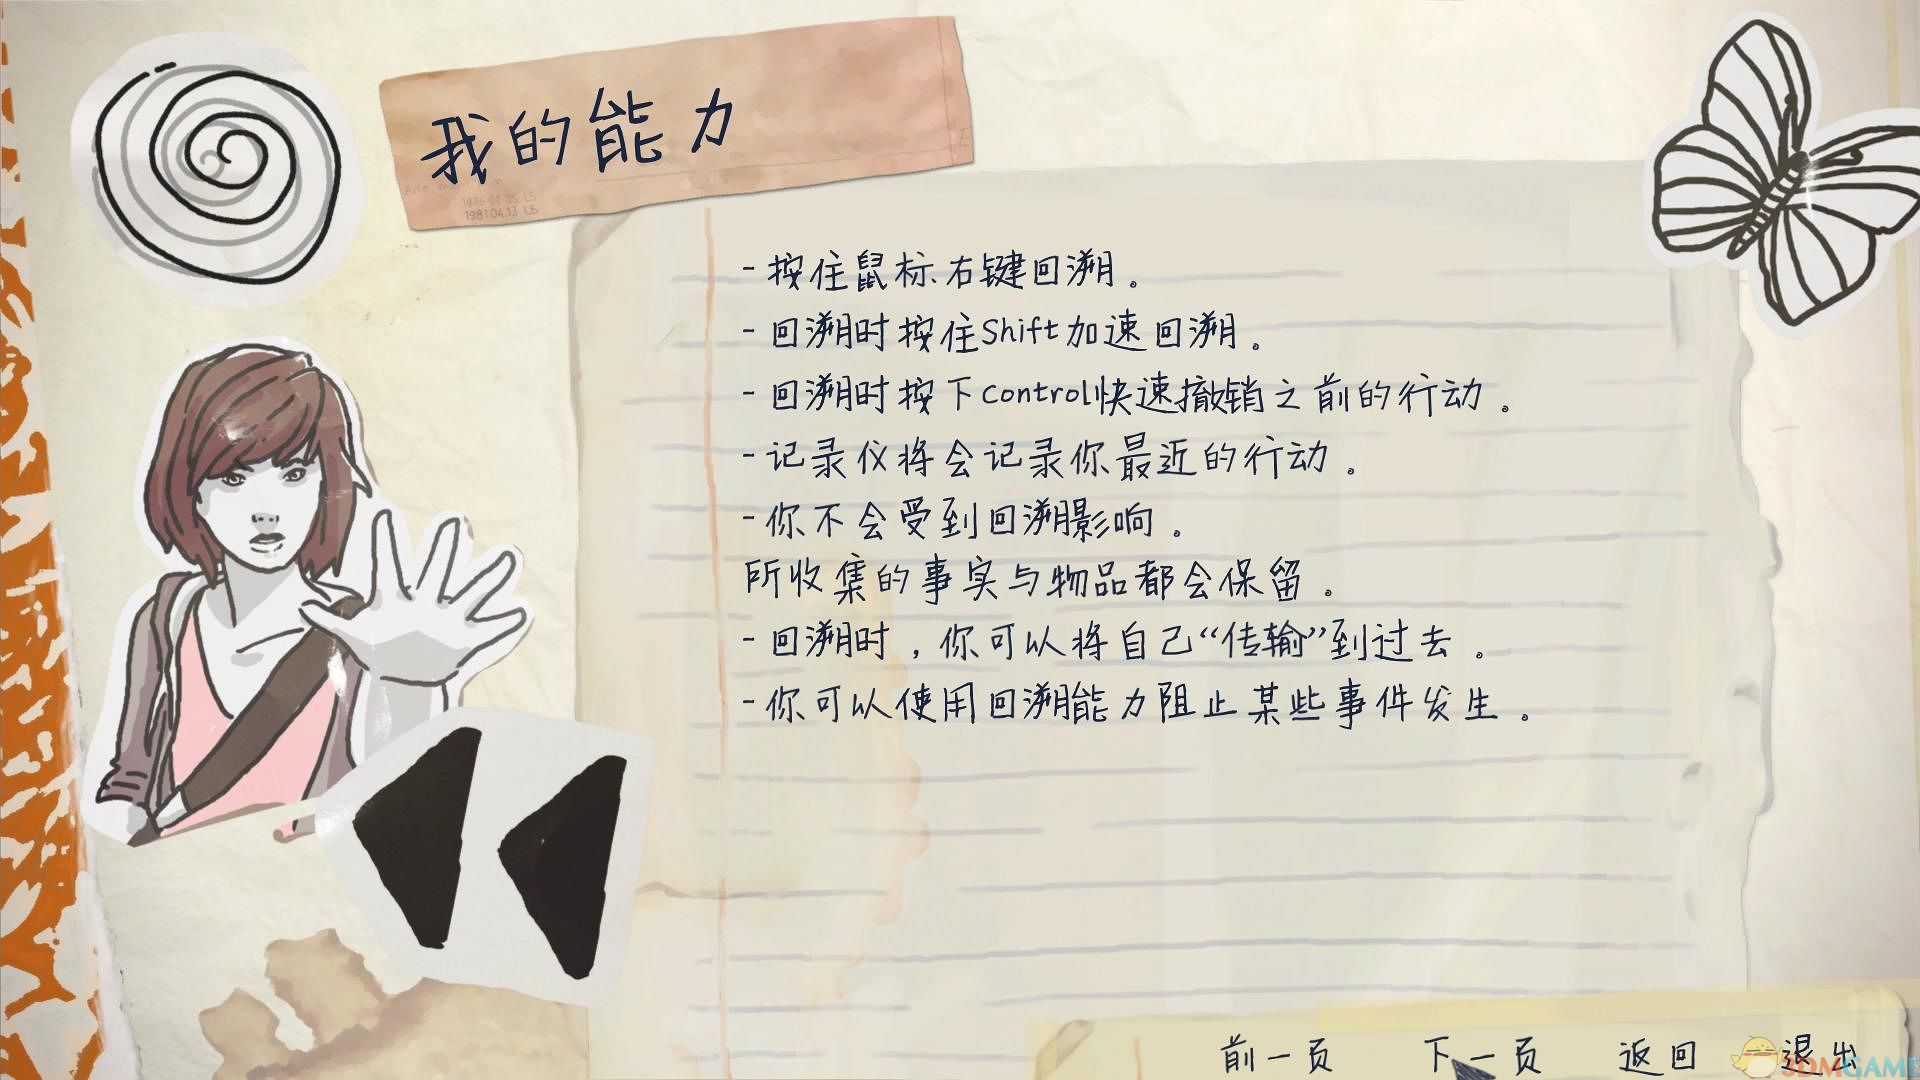 我的能力
1981.04.13 LS
- 按住鼠标右键回溯。
- 回溯时按住Shift加速回溯。
- 回溯时按下control快速撤销之前的行动。
- 记录仪将会记录你最近的行动。
- 你不会受到回溯影响。
所收集的事实与物品都会保留。
- 回溯时，你可以将自己“传输”到过去。
- 你可以使用回溯能力阻止某些事件发生。
前一页 下一页 返回 退出
3DMGAME